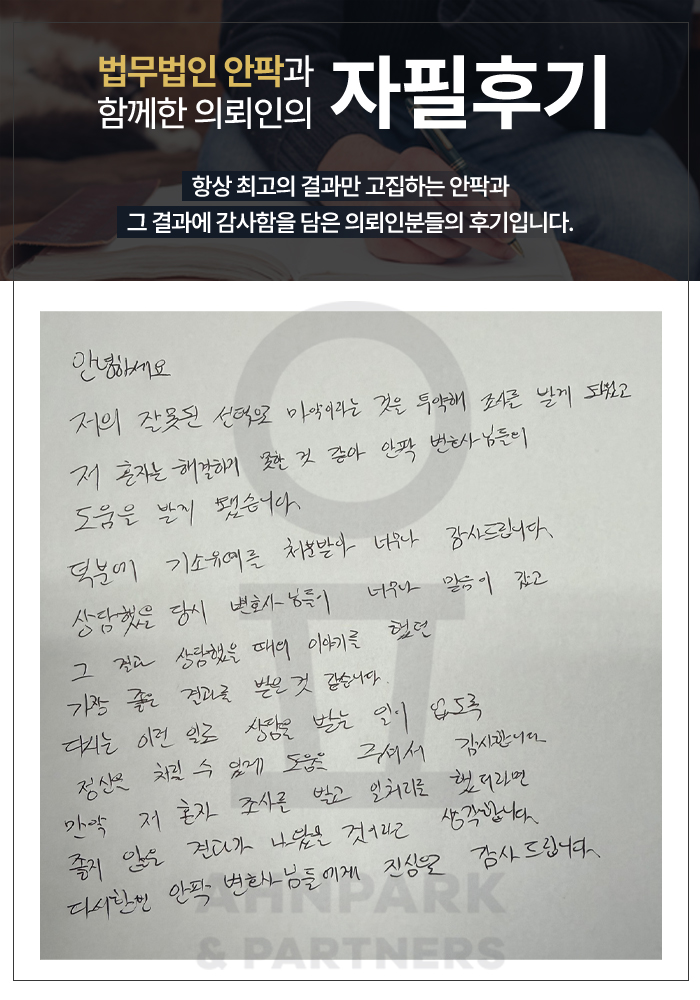 법무법인 안팍과
함께한 의뢰인의
자필후기
항상 최고의 결과만 고집하는 안팍과
그 결과에 감사함을 담은 의뢰인분들의 후기입니다.
안녕하세요
저의 잘못된 선택으로 마약이라는 것을 투약해 조사를 받게 되었고
저 혼자는 해결하기 못한 것 같아 안팍 변호사님들의
도움을 받게 됐습니다.
덕분에 기소유예를 처분받아 너무나 감사드립니다.
상담했을 당시 변호사님들이 너무나 믿음이 갔고
그 결과 상담했을 때의 이야기를 했던
가장 좋은 결과를 받은 것 같습니다.
다시는 이런 일로 상담을 받는 일이 없도록
정신을 차릴 수 있게 도움을 주셔서 감사합니다
만약 저 혼자 조사를 받고 일처리를 했더라면
좋지 않은 결과가 나왔을 것이라고 생각합니다.
다시한번 안팍 변호사님들에게 진심으로 감사 드립니다.
AHNPARK
& PARTNERS